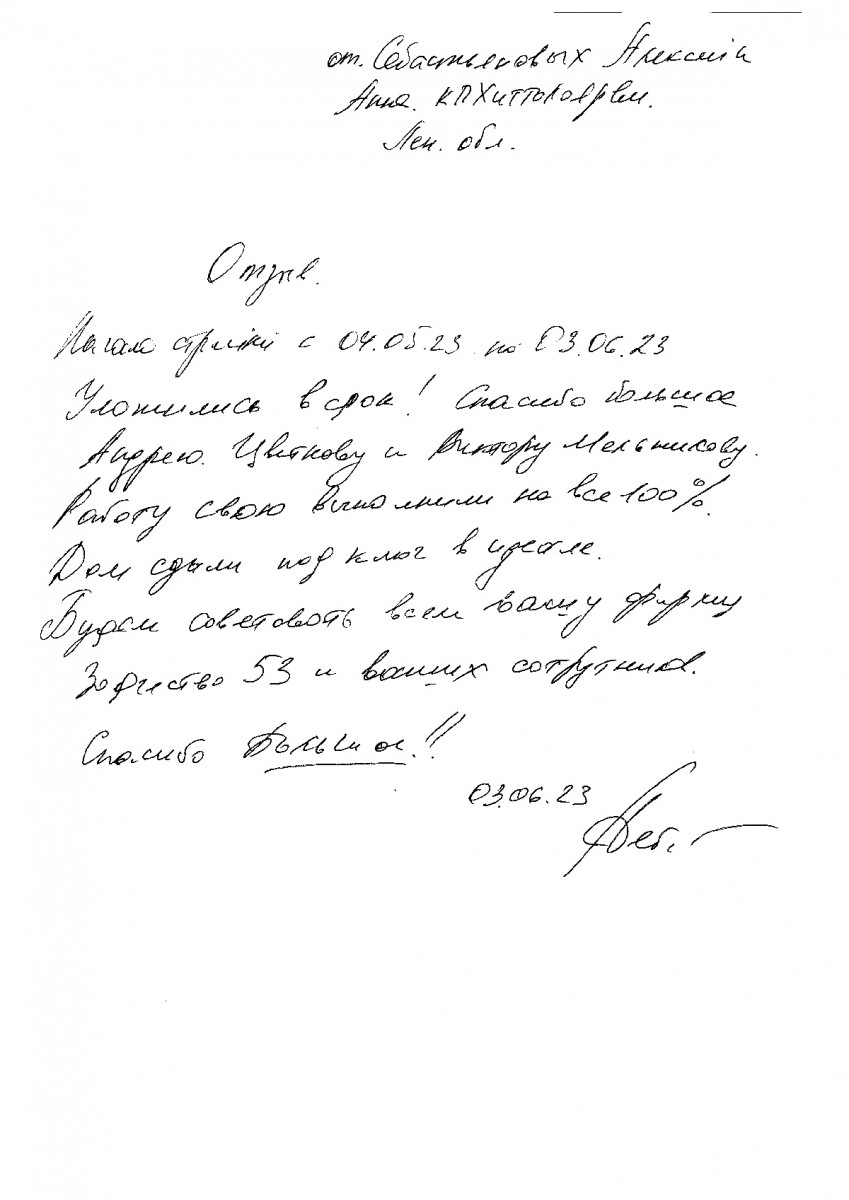 от. Себастьяновых Алексей
Анна. КП Хиттолово.
Лен. обл.
Отзыв.
Начало стройки с 04.05.23 по 03.06.23
Уложились в срок! Спасибо большое
Андрею. Цветкову и Виктору Мельникову.
Работу свою выполнили на все 100%.
Дом сдали под ключ в идеале.
Будем советовать всем вашу фирму
Зодчество 53 и ваших сотрутников.
Спасибо Большое!!
03.06.23